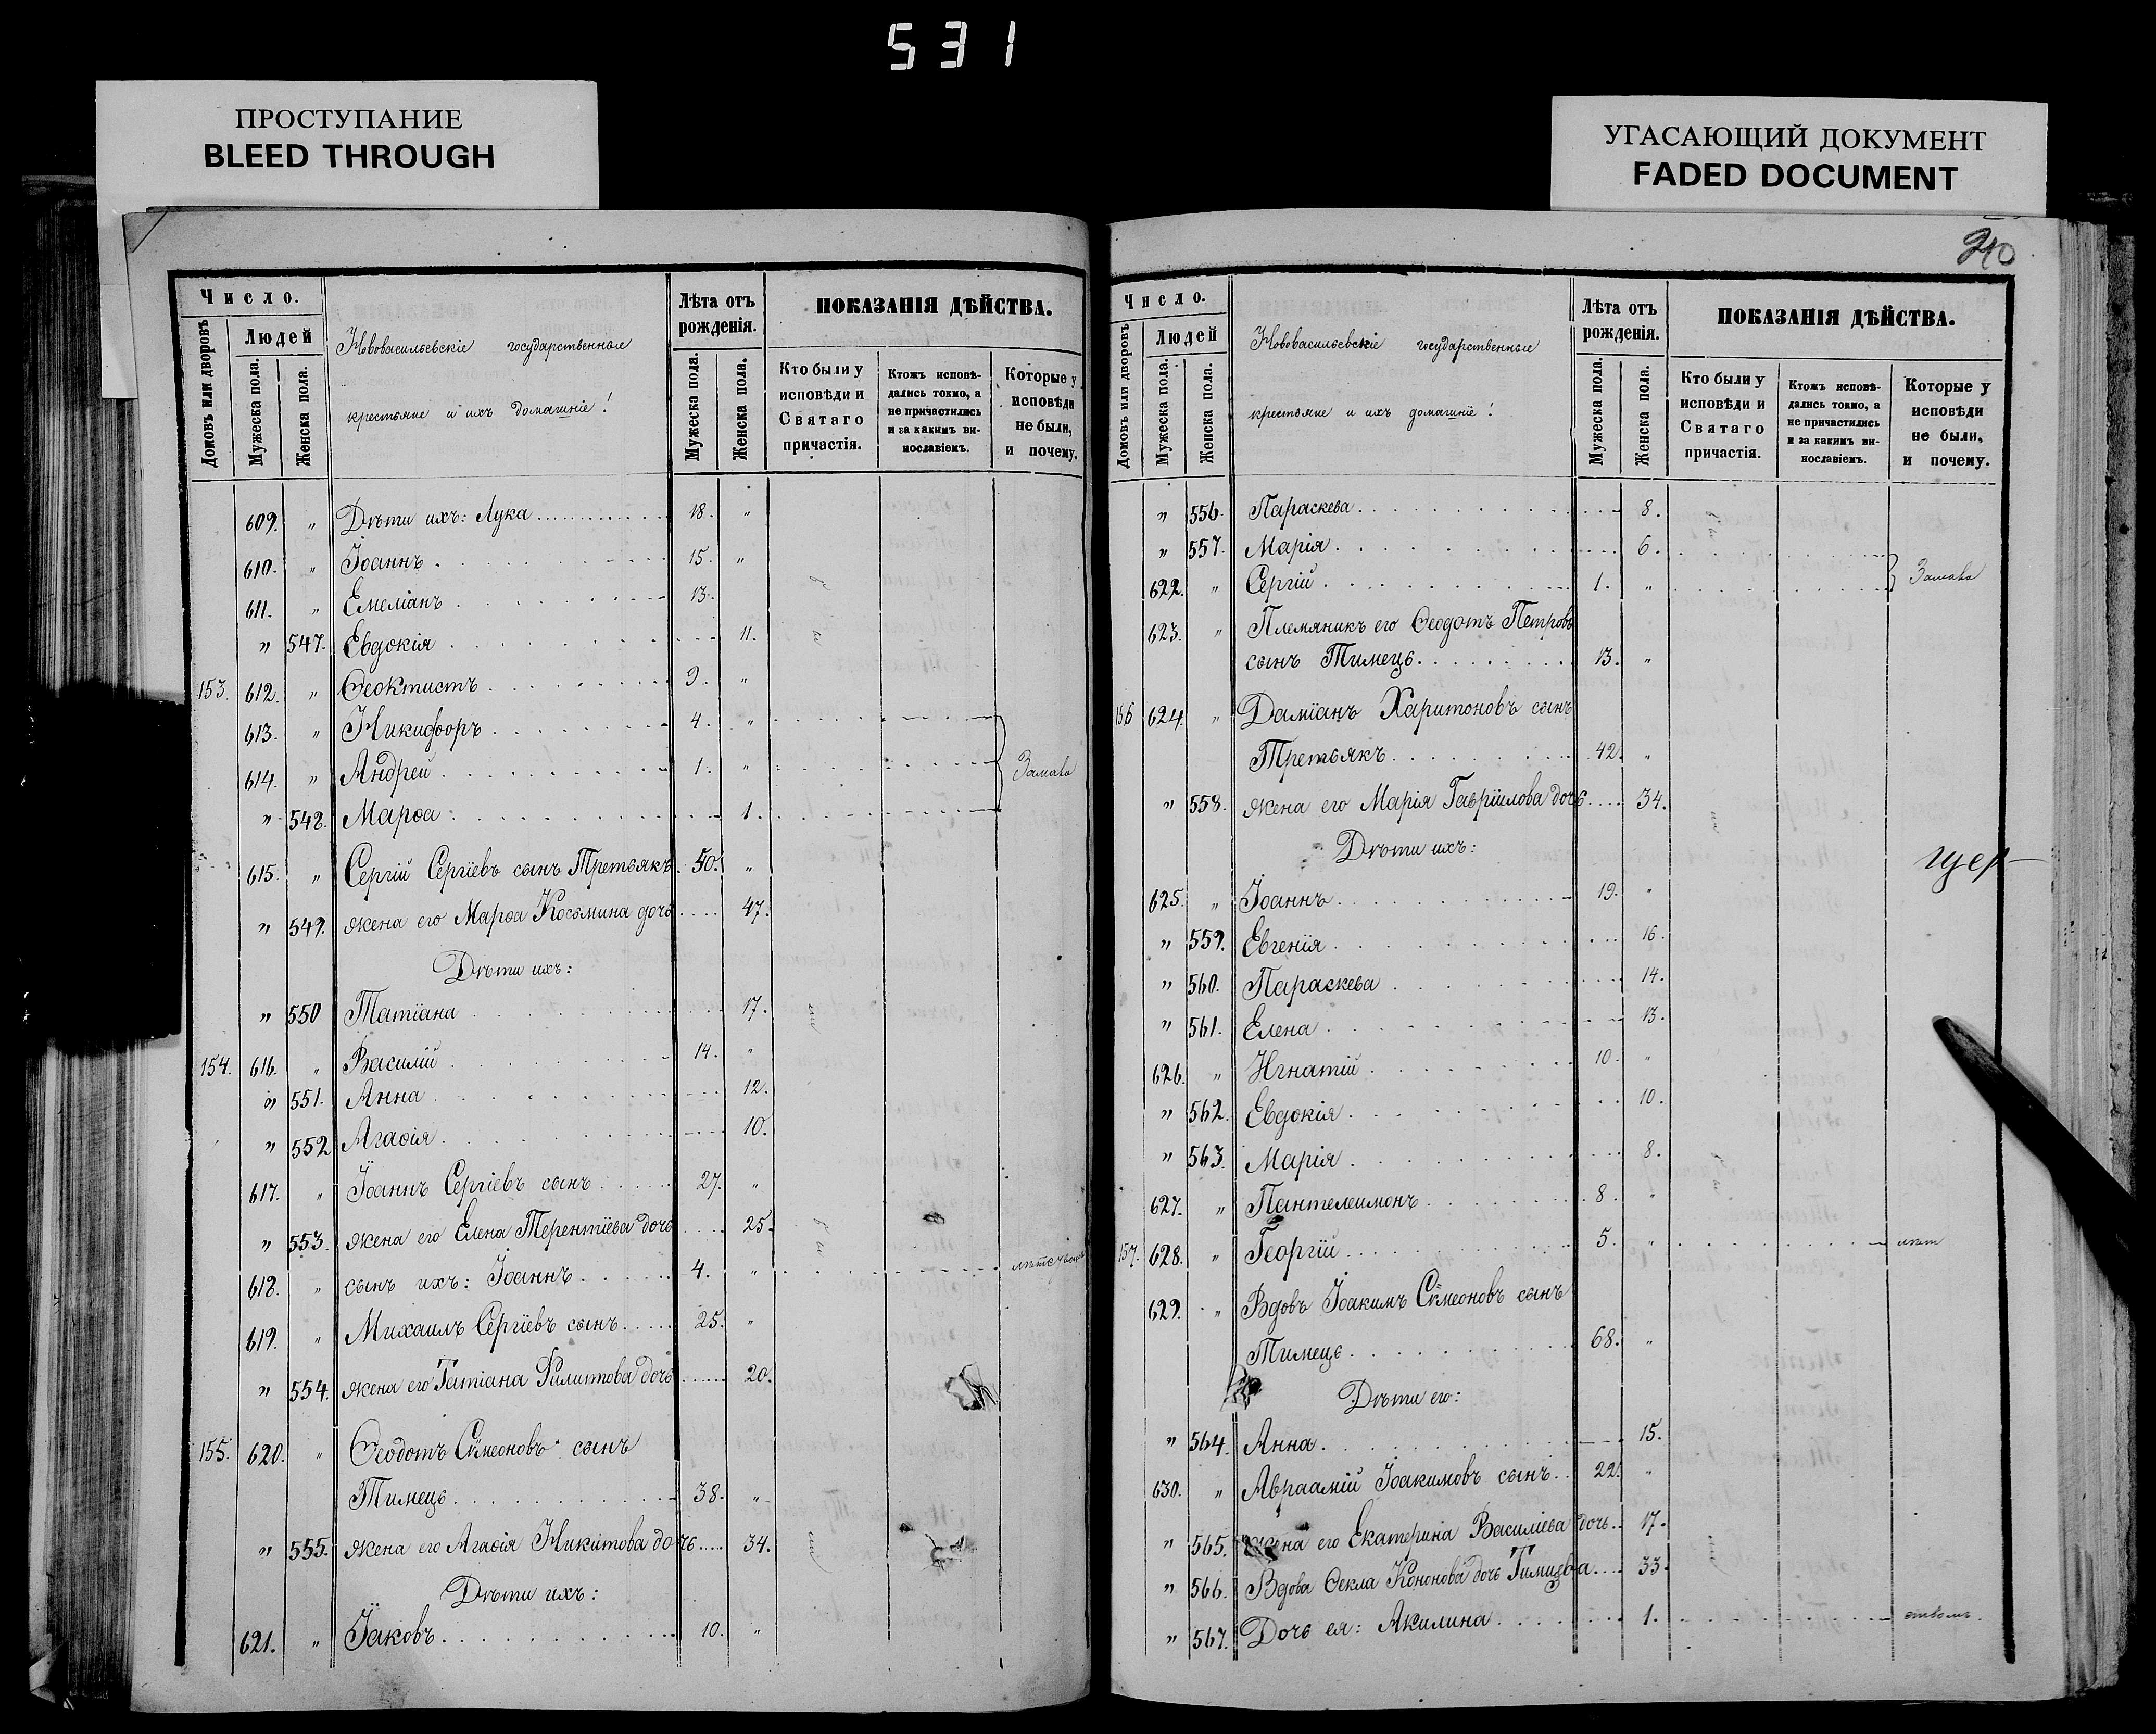 531
ПРОСТУПАНИЕ
BLEED THROUGH
УГАСАЮЩИЙ ДОКУМЕНТ
FADED DOCUMENT
Число.
Домовъ или дворовъ
Людей
Мужеска пола.
Женска пола.
Нововасильевскіе государственные
крестьяне и ихъ домашніе!
Лѣта отъ
рожденія.
Мужеска пола.
Женска пола.
ПОКАЗАНІЯ ДѢЙСТВА.
Кто были у
исповѣди и
Святаго
причастія.
Ктожъ исповѣ-
дались токмо, а
не причастились
и за какимъ ви-
нословіемъ.
Которые у
исповѣди
не были,
и почему.
609. " Дѣти ихъ: Лука 18. "
610. " Іоаннъ 15. "
611. " Емеліанъ 13.
" 547. Евдокія 11.
153. 612. " Ѳеоктистъ 9. "
613. " Никифоръ 4. "
614. " Андрей 1. "
" 548. Марѳа 1.
615. " Сергій Сергіевъ сынъ Третьякъ 50. "
" 549. жена его Марѳа Космина дочь 47.
Дѣти ихъ:
" 550 Татіана 17.
154. 616. " Василій 14. "
" 551. Анна 12.
" 552 Агаѳія 10.
617. " Іоаннъ Сергіевъ сынъ 27. "
" 553. жена его Елена Терентіева дочь 25.
618. " сынъ ихъ: Іоаннъ 4. "
619. " Михаилъ Сергіевъ сынъ 25. "
" 554. жена его Татіана Филиппова дочь 20.
155. 620. " Ѳеодотъ Сѵмеоновъ сынъ
Тимець 38. "
" 555. жена его Агаѳія Никитова дочь 34.
Дѣти ихъ:
621. " Іаковъ 10. "
240
Число.
Домовъ или дворовъ
Людей
Мужеска пола.
Женска пола.
Нововасильевскіе государственные
крестьяне и ихъ домашніе!
Лѣта отъ
рожденія.
Мужеска пола.
Женска пола.
ПОКАЗАНІЯ ДѢЙСТВА.
Кто были у
исповѣди и
Святаго
причастія.
Ктожъ исповѣ-
дались токмо, а
не причастились
и за какимъ ви-
нославіемъ.
Которые у
исповѣди
не были,
и почему.
" 556. Параскева 8.
" 557. Марія 6.
622. " Сергій 1. "
623. " Племяникъ его Ѳеодотъ Петровъ
сынъ Тимець 13. "
156 624. " Даміанъ Харитоновъ сынъ
Третьякъ 42. "
" 558. жена его Марія Гавріилова дочь 34.
Дѣти ихъ:
625. " Іоаннъ 19. "
" 559. Евгенія 16.
" 560. Параскева 14.
" 561. Елена 13.
626. " Игнатій 10. "
" 562. Евдокія 10.
" 563. Марія 8.
627. " Пантелеимонъ 8. "
157. 628. " Георгій 5. "
629. " Вдовъ Іоакимъ Сѵмеоновъ сынъ
Тимець 68. "
Дѣти его:
" 564. Анна 15.
630. " Авраамій Іоакимовъ сынъ 22. "
" 565. жена его Екатерина Василіева дочь 17.
" 566. Вдова Ѳекла Кононова дочь 33.
" 567. Дочь ея: Акилина 1.